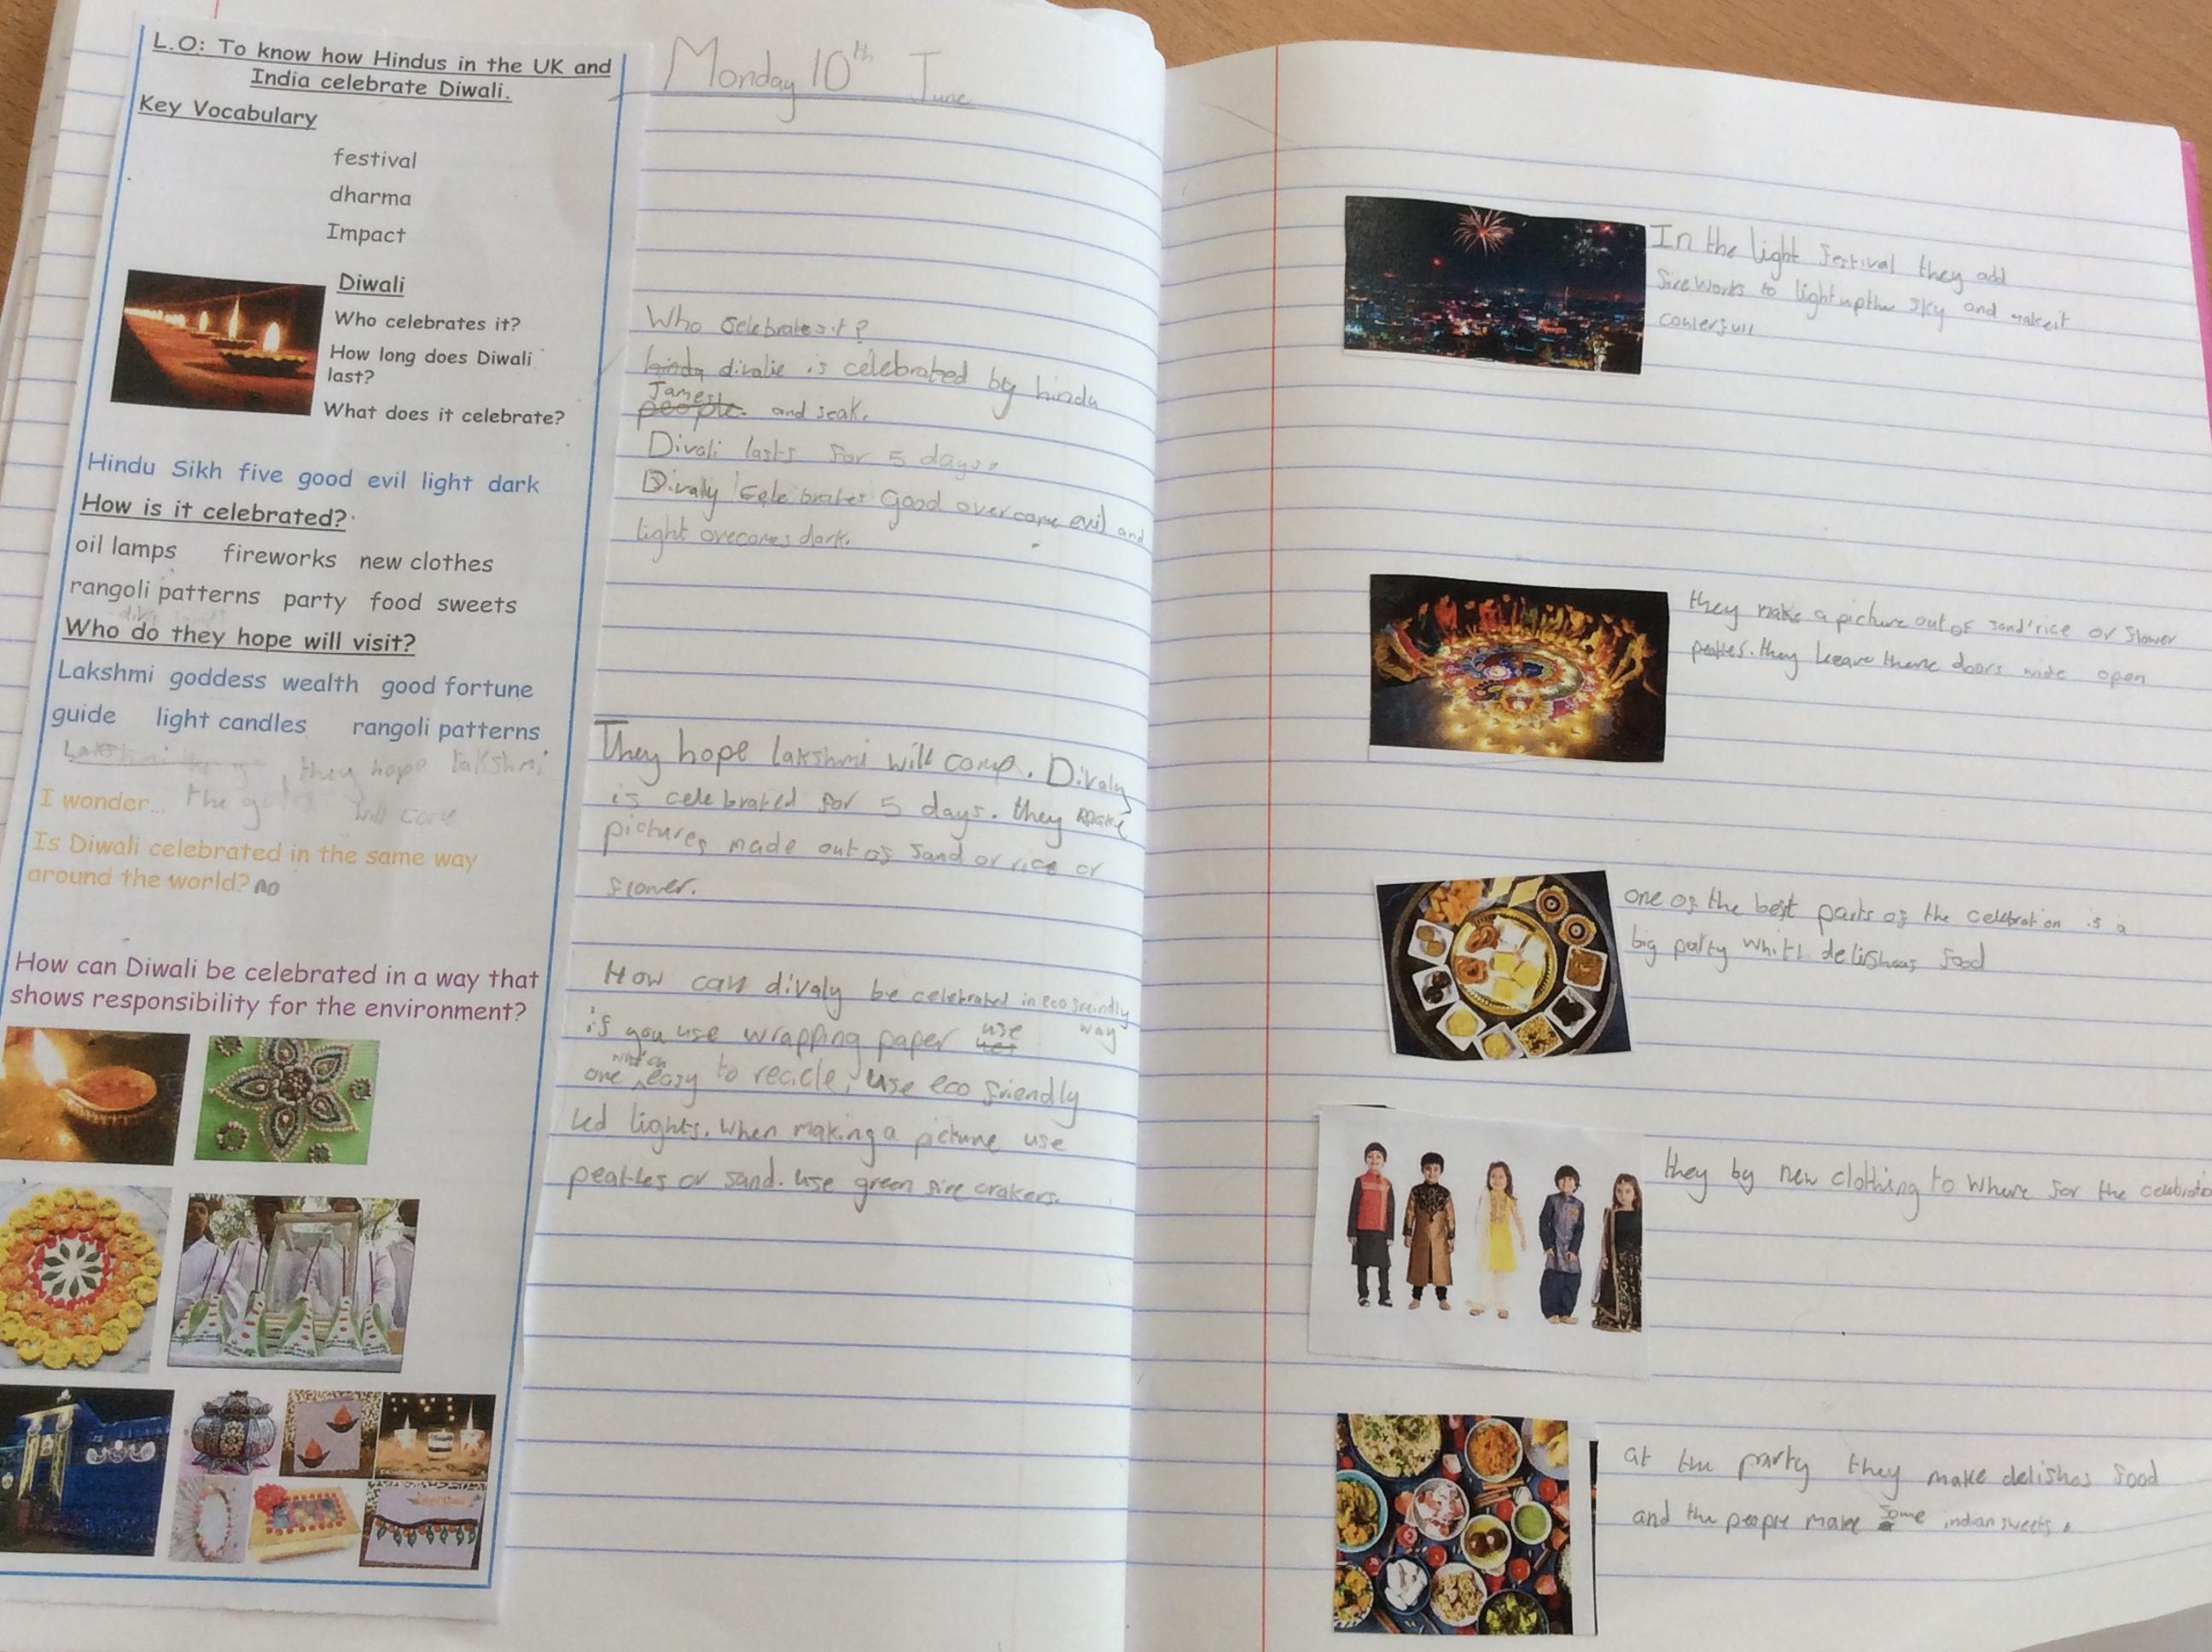 L.O: To know how Hindus in the UK and
India celebrate Diwali.
Key Vocabulary
festival
dharma
Impact
Diwali
Who celebrates it?
How long does Diwali
last?
What does it celebrate?
Hindu Sikh five good evil light dark
How is it celebrated?
oil lamps fireworks new clothes
rangoli patterns party food sweets
Who do they hope will visit?
Lakshmi goddess wealth good fortune
guide light candles rangoli patterns
they hope lakshmi
I wonder... the will come
Is Diwali celebrated in the same way
around the world? no
How can Diwali be celebrated in a way that
shows responsibility for the environment?
Monday 10th June
Who Celebrates it?
hindu divalie is celebrated by hindu
James
people. and seak.
Divali lasts for 5 days.
Divaly Celebrates Good overcome evil and
light overcomes dark.
They hope lakshmi will come. Divaly
is celebrated for 5 days. they make
pictures made out of sand or rice or
flower.
How can divaly be celebrated in eco freindly
way
if you use wrapping paper use
one which easy to recicle, use eco friendly
led lights. When making a picture use
peatles or sand. use green fire crakers.
In the light festival they add
fireworks to light up the sky and make it
coulerfull
they make a picture out of sand rice or flower
peatles. they leeave there doors wide open
one of the best parts of the celebration is a
big party whith delishous food
they by new clothing to Where for the celebratio
at the party they make delishas food
and the people make some indian sweets.